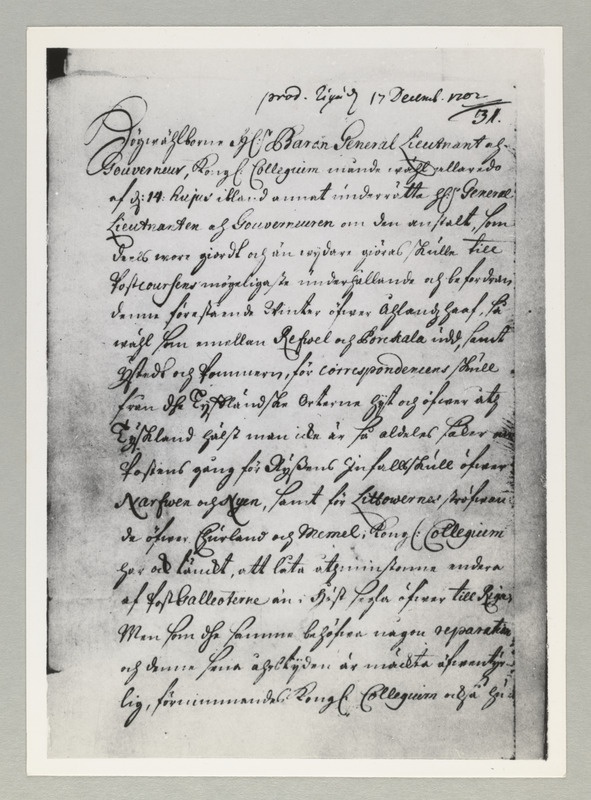 prod. Riga d 17 Decemb. 1702
31.
Högwählborne H:r Baron General Lieutnant och
Gouverneur, Kongl: Collegium månde wähl allaredo
af d: 14 hujus ibland annat underrätta H:r General
Lieutnanten och Gouverneuren om den anstalt, som
deels wore giordt och än wydare giöras skulle till
Postcoursens möyeligaste underhållande och befordran
denne förestående Winter öfwer Åhlandz haaf, så
wähl som emellan Refwel och Porckala udd, samt
Ystedt och Pommern, för correspondencens skull
från dhe Tyskländske Orterne hyst och öfwer åth
Tyskland, hälst man icke är så aldeles säker
Postens gång för Ryssens Infalls skull öfwer
Narfwen och Nyen, samt för Littowernes ströfwan
de öfwer Churland och Memel; Kongl: Collegium
har och tänckt, att låta åthminstonne endera
af Post Galleoterne än i Höst segla öfwer till Riga
Men som dhe samme behöfwa någon reparation
och denne sena åhrstyden är mächta äfwentyr
lig, förnimmandes Kongl: Collegium också